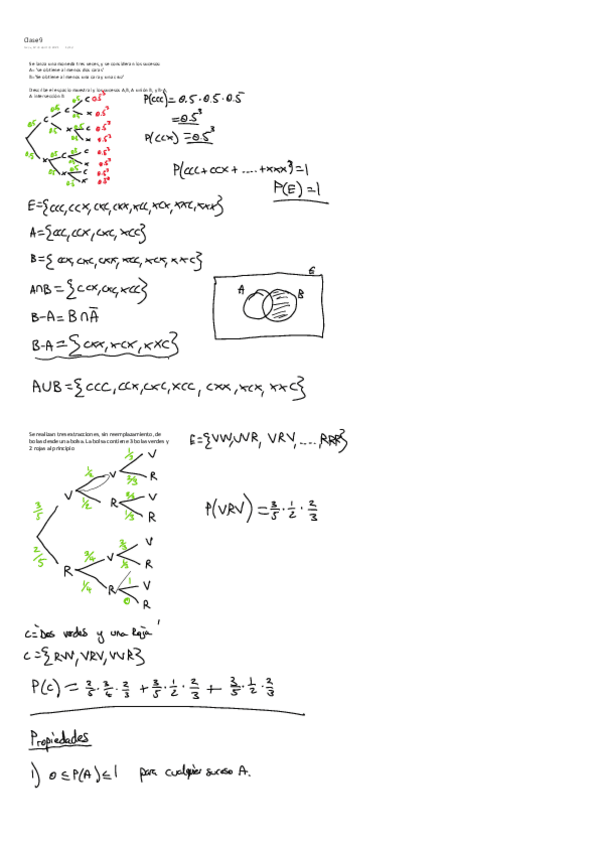 Clase 9
Se lanza una moneda tres veces, y se consideran los sucesos
A= "se obtiene al menos dos caras"
B= "se obtiene al menos una cara y una cruz"
Describe el espacio muestral y los sucesos A, B, A unión B, y B-A,
A intersección B
P(CCC) = 0.5 · 0.5 · 0.5
= 0.5³
P(CCX) = 0.5³
P(CCC + CCX + .... + XXX) = 1
P(E) = 1
E={CCC, CCX, CXC, CXX, XCC, XCX, XXC, XXX}
A={CCC, CCX, CXC, XCC}
B={CCX, CXC, CXX, XCC, XCX, XXC}
A∩B = {CCX, CXC, XCC}
B-A = B∩Ā
B-A = {CXX, XCX, XXC}
E
A B
AUB = {CCC, CCX, CXC, XCC, CXX, XCX, XXC}
Se realizan tres extracciones, sin reemplazamiento, de
bolas desde una bolsa. La bolsa contiene 3 bolas verdes y
2 rojas al principio
E={VVV, VVR, VRV, ...., RRR}
P(VRV) = 3/5 · 1/2 · 2/3
C="Dos verdes y una Roja"
C={RVV, VRV, VVR}
Propiedades
1) 0 ≤ P(A) ≤ 1 para cualquier suceso A.